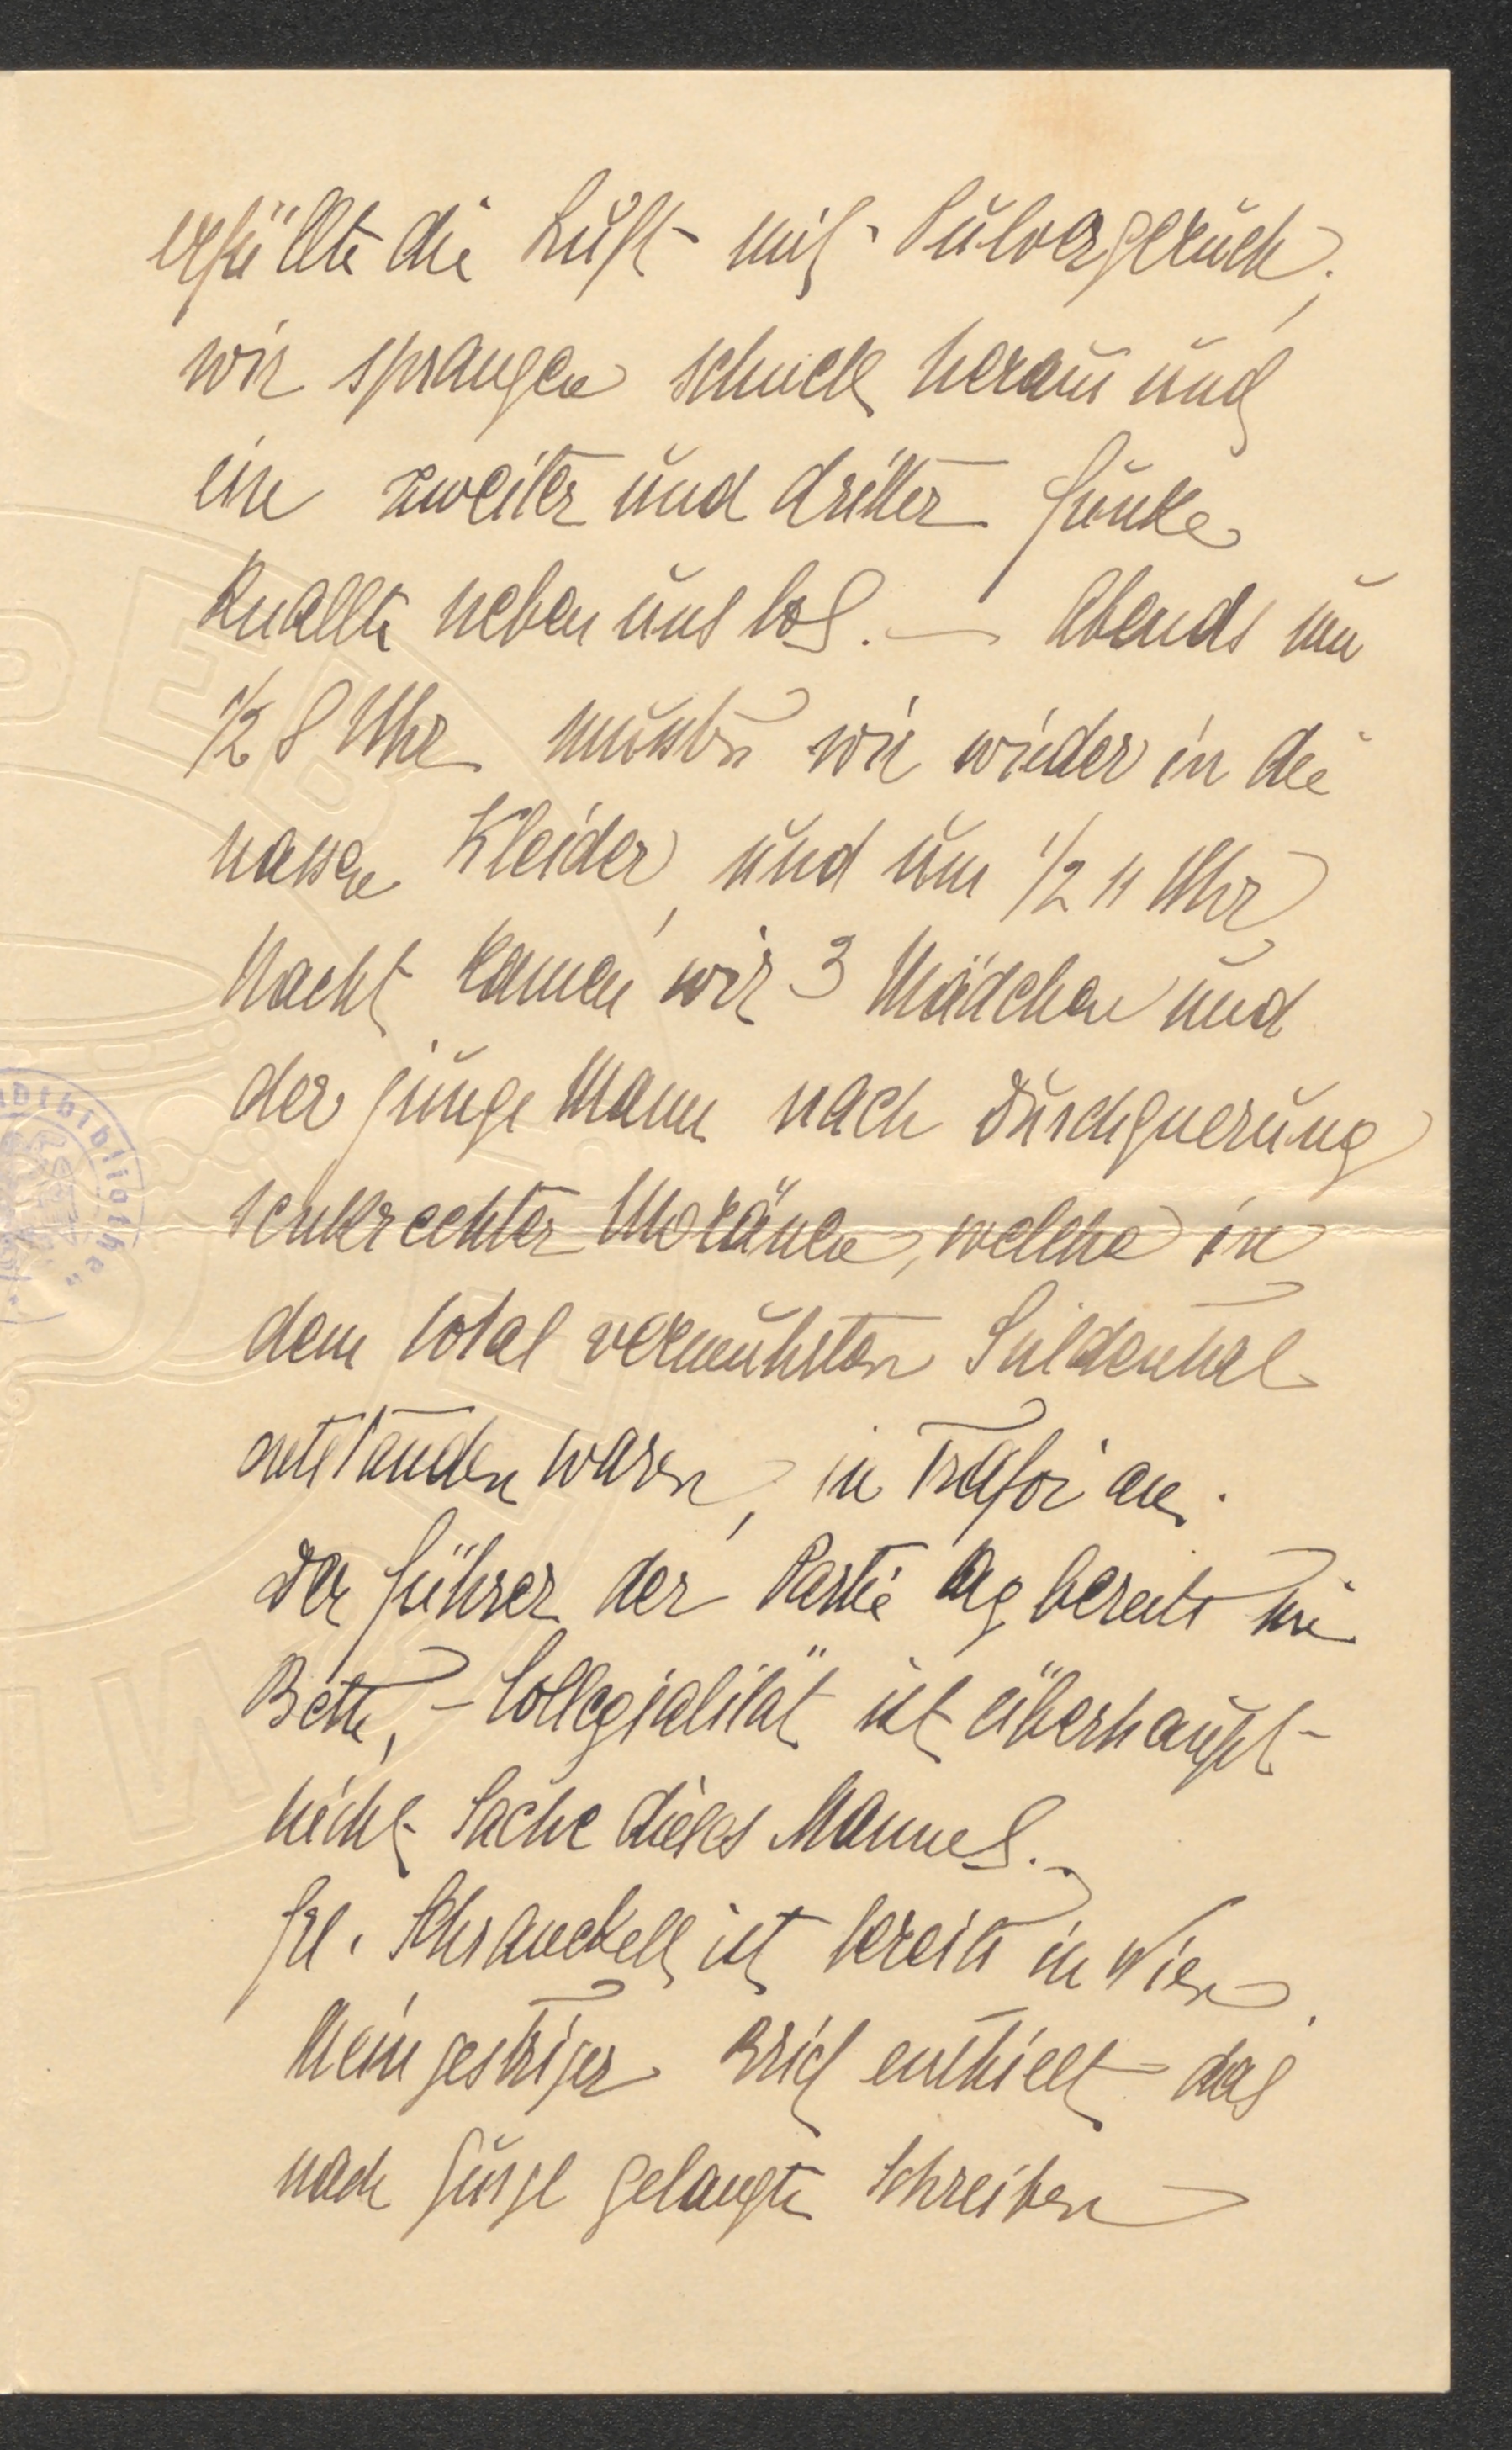 erfüllte die Luft mit Pulvergeruch;
wir sprangen schnell heraus und
ein zweiter und dritter Funke
knallte neben uns los. — Abends um
1/2 8 Uhr mussten wir wieder in die
nassen Kleider, und um 1/2 11 Uhr
Nacht kamen wir 3 Mädchen und
der junge Mann nach Durchquerung
senkrechter Moränen, welche in
dem total vermuhrten Suldenthal
entstanden waren, in Trafoi an.
Der Führer der Partie lag bereits im
Bette, – Collegialität ist überhaupt
nicht Sache dieses Mannes.
Frl. ist bereits in Wien.
Mein gestriger Brief enthielt das
nach Gurgl gelangte Schreiben